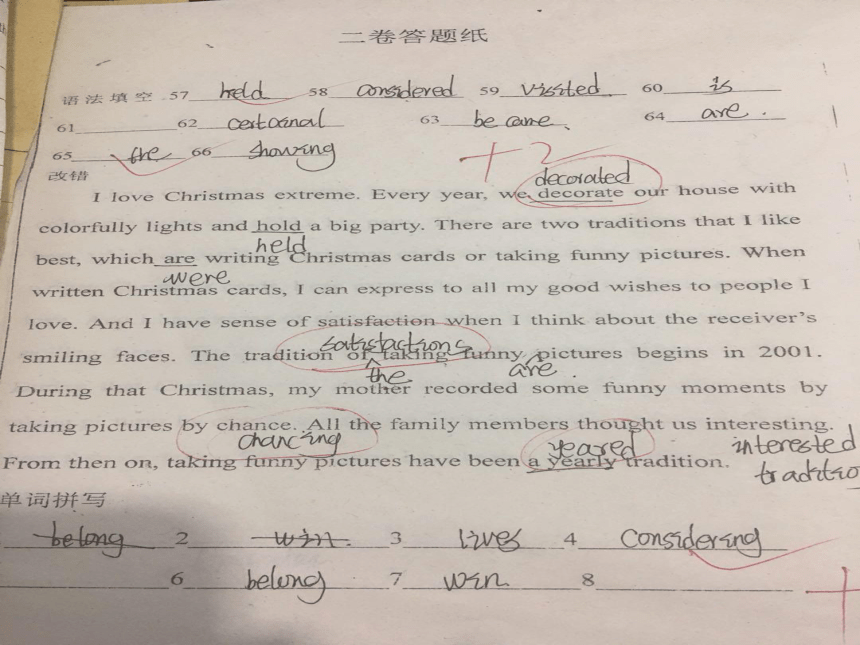 二卷答题纸
语法填空 57 held 58 considered 59 visited 60 is
61 62 certainal 63 became. 64 are.
65 the 66 showing
+2
改错
decorated
I love Christmas extreme. Every year, we decorate our house with
colorfully lights and hold a big party. There are two traditions that I like
held
best, which are writing Christmas cards or taking funny pictures. When
were
written Christmas cards, I can express to all my good wishes to people I
love. And I have sense of satisfaction when I think about the receiver's
satisfactions
smiling faces. The tradition of taking funny pictures begins in 2001.
the are.
During that Christmas, my mother recorded some funny moments by
taking pictures by chance. All the family members thought us interesting.
chancing yeared interested
From then on, taking funny pictures have been a yearly tradition.
traditio
单词拼写
belong 2 win. 3 lives 4 Considering
6 belong 7 win 8